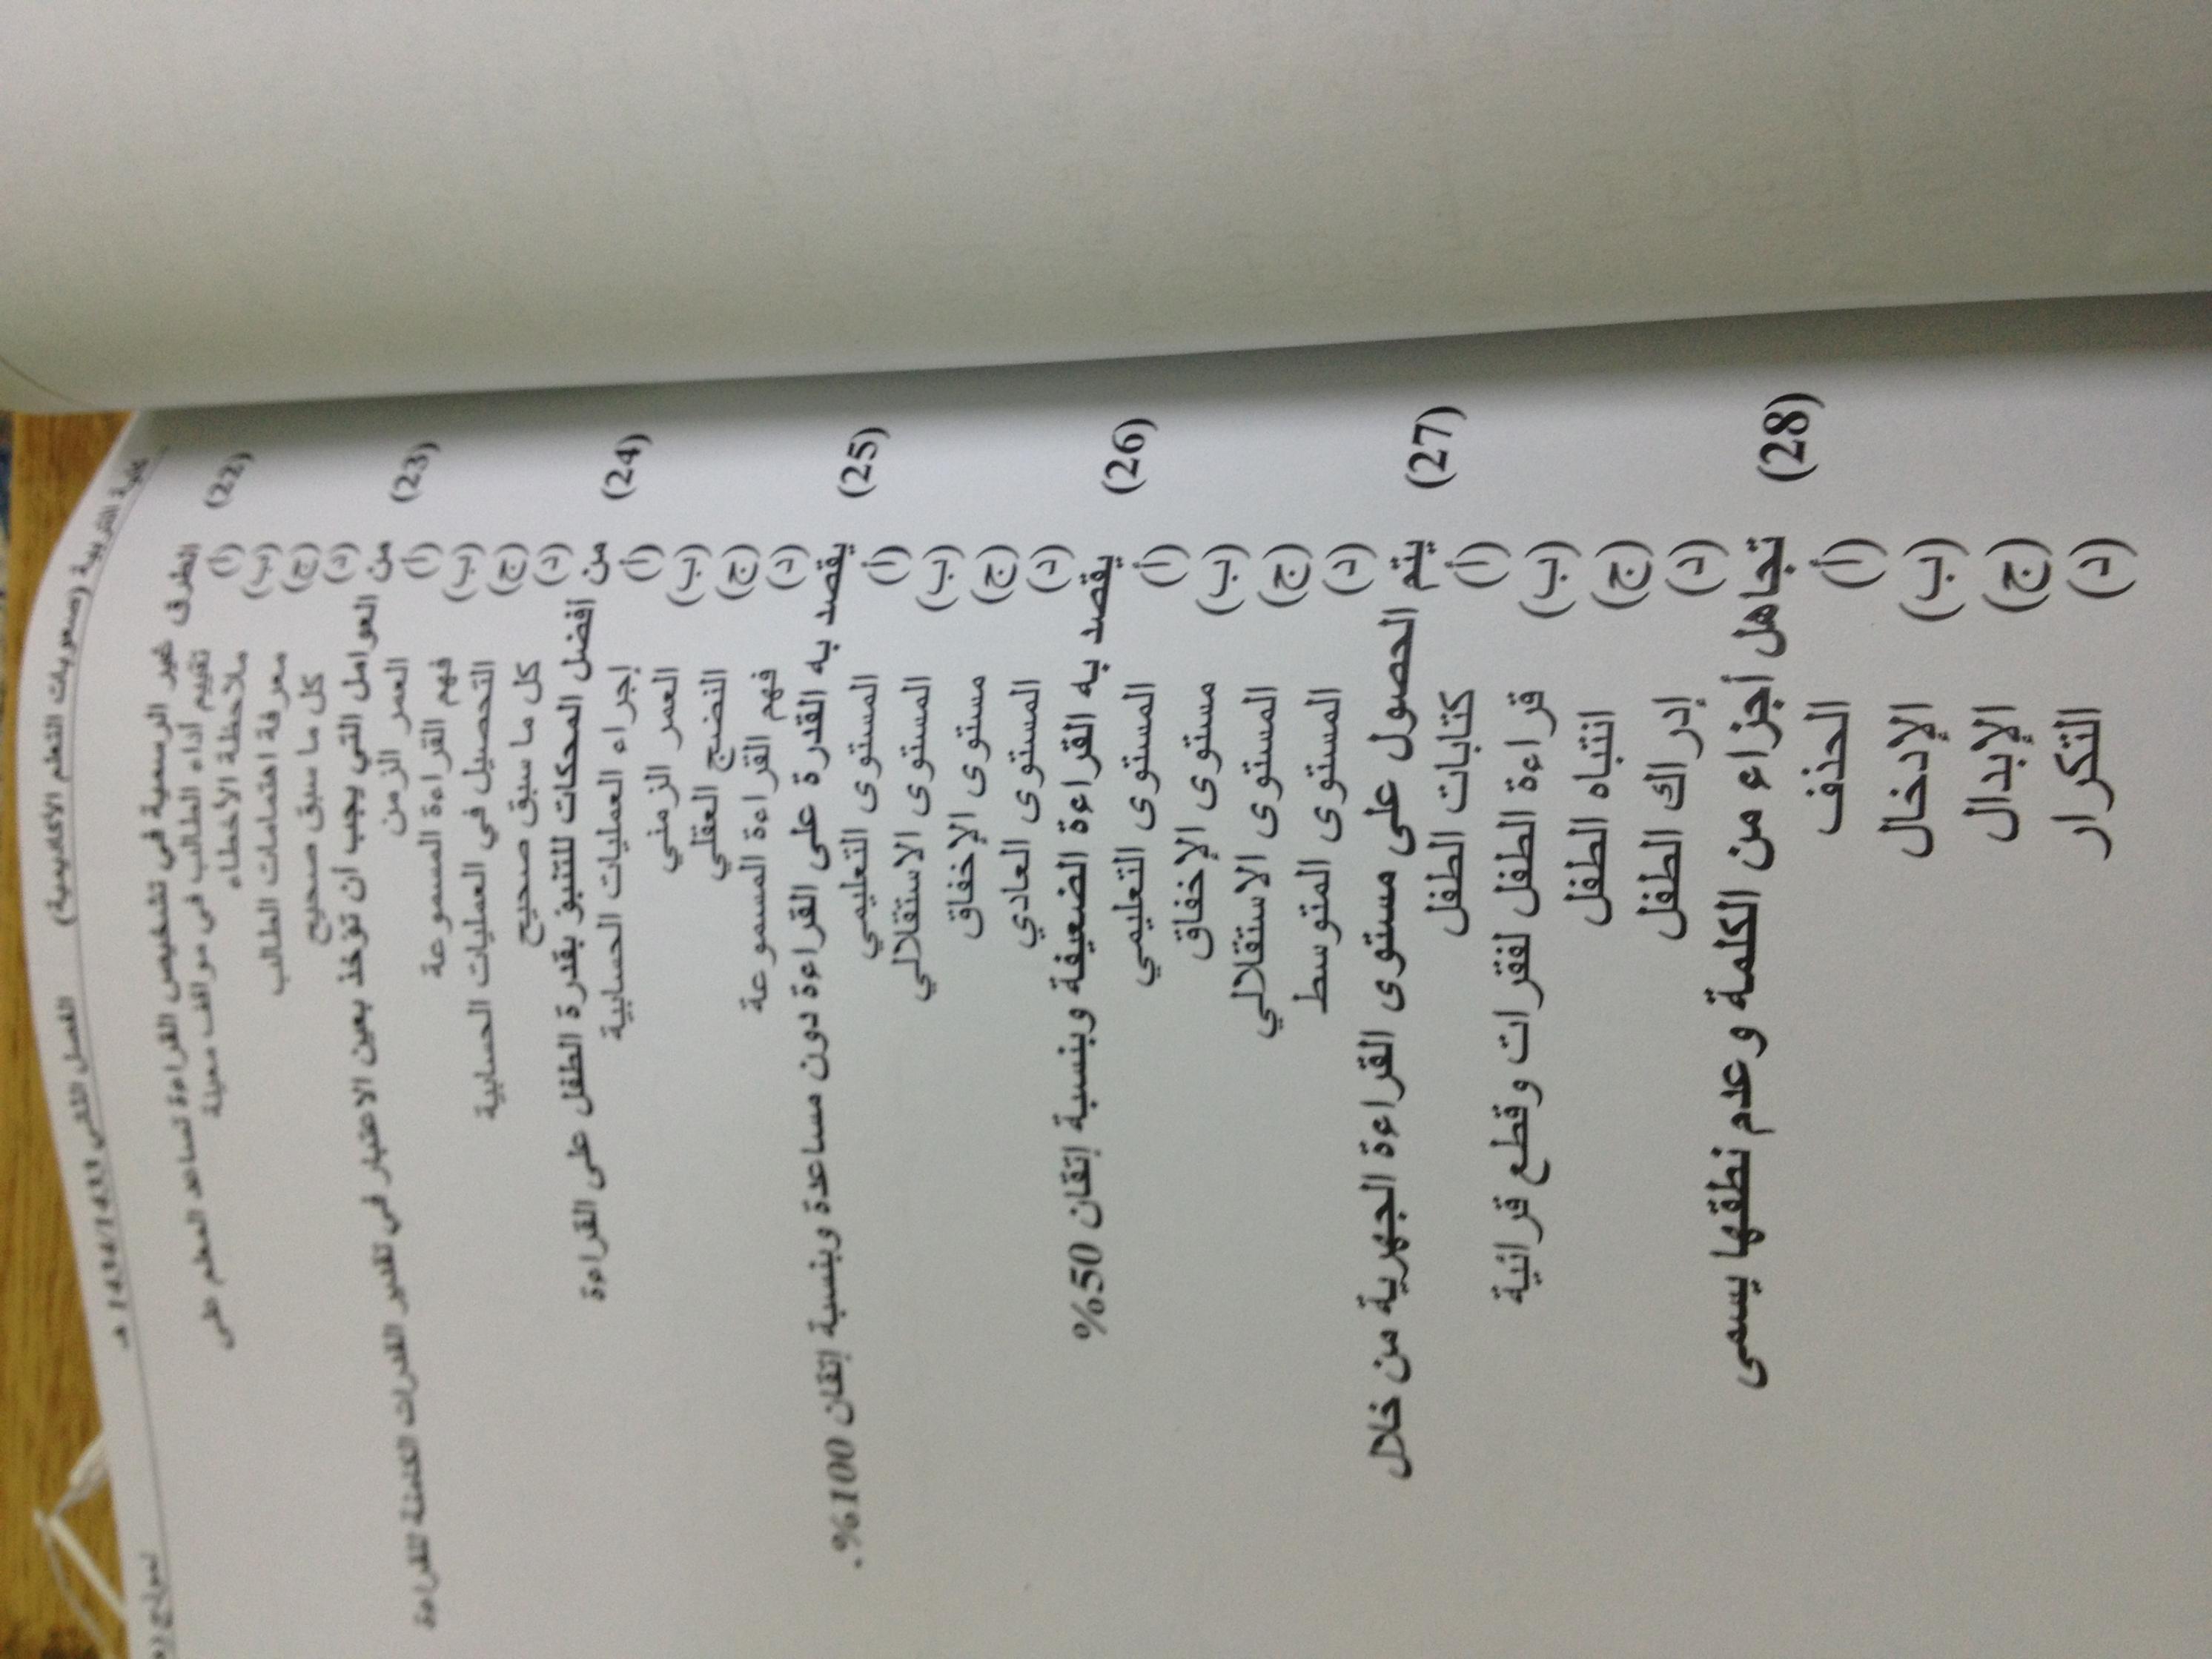 كلية التربية (صعوبات التعلم الأكاديمية) الفصل الثاني 1434/1433 هـ نموذج
(22) الطرق غير الرسمية في تشخيص القراءة تساعد المعلم على
(أ) تقييم أداء الطالب في مواقف معينة
(ب) ملاحظة الأخطاء
(ج) معرفة اهتمامات الطالب
(د) كل ما سبق صحيح
(23) من العوامل التي يجب أن تؤخذ بعين الاعتبار في تقدير القدرات الكامنة للقراءة
(أ) العمر الزمن
(ب) فهم القراءة المسموعة
(ج) التحصيل في العمليات الحسابية
(د) كل ما سبق صحيح
(24) من أفضل المحكات للتنبؤ بقدرة الطفل على القراءة
(أ) إجراء العمليات الحسابية
(ب) العمر الزمني
(ج) النضج العقلي
(د) فهم القراءة المسموعة
(25) يقصد به القدرة على القراءة دون مساعدة وبنسبة إتقان 100%.
(أ) المستوى التعليمي
(ب) المستوى الاستقلالي
(ج) مستوى الإخفاق
(د) المستوى العادي
(26) يقصد به القراءة الضعيفة وبنسبة إتقان 50%
(أ) المستوى التعليمي
(ب) مستوى الإخفاق
(ج) المستوى الاستقلالي
(د) المستوى المتوسط
(27) يتم الحصول على مستوى القراءة الجهرية من خلال
(أ) كتابات الطفل
(ب) قراءة الطفل لفقرات وقطع قرائية
(ج) انتباه الطفل
(د) إدراك الطفل
(28) تجاهل أجزاء من الكلمة وعدم نطقها يسمى
(أ) الحذف
(ب) الإدخال
(ج) الإبدال
(د) التكرار